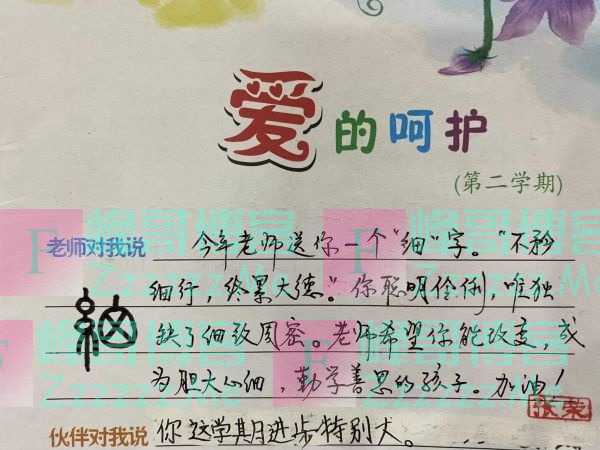 爱的呵护
(第二学期)
老师对我说 今年老师送你一个“细”字。“不矜
细行，终累大德。”你聪明伶俐，唯独
缺了细致周密。老师希望你能改变成
为胆大心细，勤学善思的孩子。加油！
細
张荣
伙伴对我说 你这学期进步特别大。